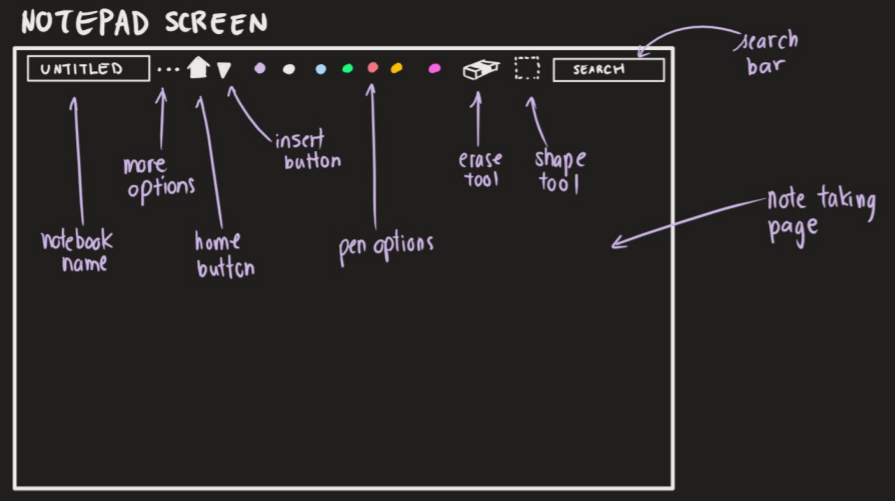 NOTEPAD SCREEN
UNTITLED
SEARCH
search
bar
insert
button
more
options
erase
tool
shape
tool
note taking
page
notebook
name
home
button
pen options